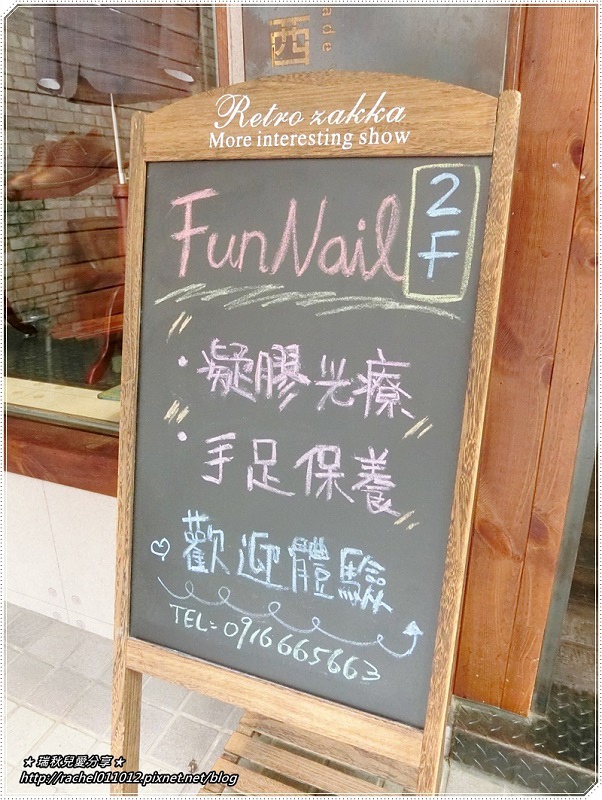 西
ade
Retro zakka
More interesting show
Fun Nail 2F
• 凝膠光療
• 手足保養
♡ 歡迎體驗
TEL: 0916665663
★ 瑞秋兒愛分享 ★
http://rachel011012.pixnet.net/blog